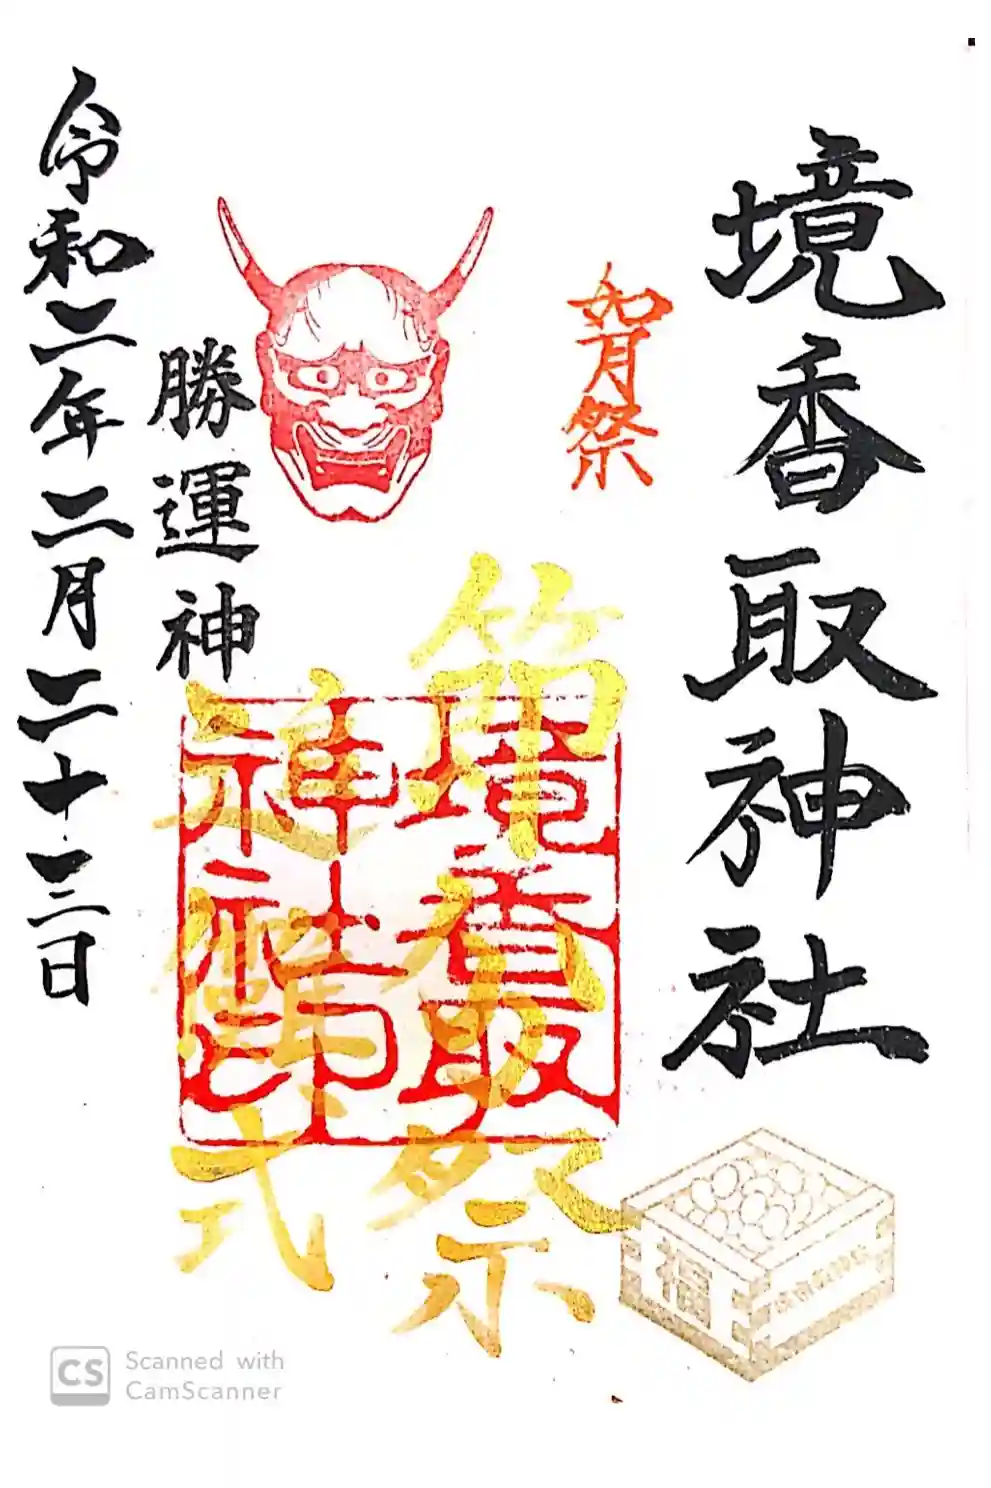 境香取神社
如月祭
節分祭
追儺式
境香取
神社印
勝運神
令和二年二月二十三日
福
CS
Scanned with
CamScanner